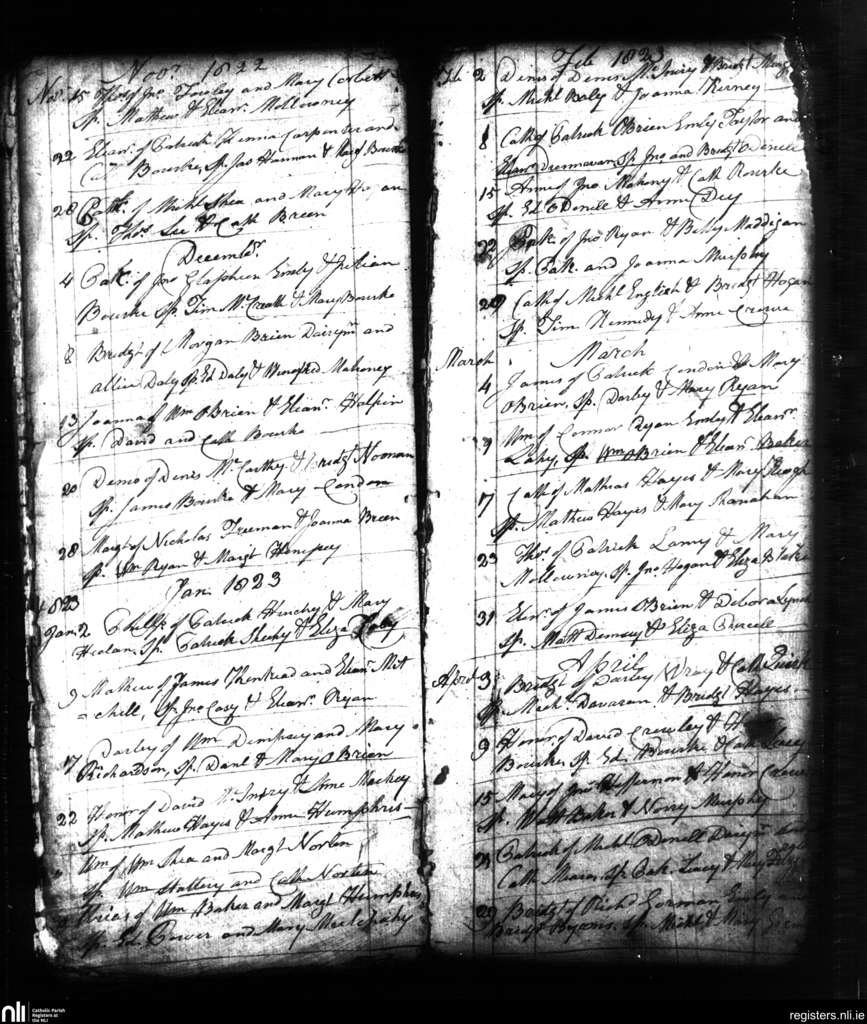 Novr. 1822
Nov. 15 Thos of Jno Towley and Mary Corbett
Sp. Mathew & Eleanr. Mollowney
22 Eleanr. of Patrick Carpenter and
Bourke, Sp. Jas Hannan & Margt Bourke
28 Patk. of Michl Shea and Mary Hogan
Sp. Thos. Lee & Cath Breen
Decembr.
4 Patk. of Jno Glasheen Emly & Jillian
Bourke Sp. Tim McCraith & Mary Bourke
8 Bridgt of Morgan Brien Dairym and
allice Daly Sp. Ed Daly & Winefred Mahoney
13 Joanna of Wm OBrien & Eleanr. Halpin
Sp. David and Cath Bourke
20 Denis of Denis McCarthy & Bridgt Noonan
Sp. James Bourke & Mary Condon
28 Margt of Nicholas Freeman & Joanna Breen
Sp. Wm Ryan & Margt Hempsey
Jan. 1823
1823
Jan. 2 Phillp. of Patrick Hinchey & Mary
Healan, Sp. Patrick Sheehy & Eliza Daly
9 Mathew of James & Eleanr. Mit
=chell, Sp. Jno Casey & Eleanr. Ryan
17 Darley of Wm Dempsey and Mary
Richardson, Sp. Danl & Mary OBrien
22 Honor of David & Anne Mackey
Sp. Mathew Hayes & Anne Humphris
" Wm of Wm Shea and Margt Norten
Sp. Wm Slattery and Cath Norten
of Wm Baker and Margt Humphris
Sp. Ed. Power and Mary
Feb 1823
Feb 2 Denis of Denis & Bridgt
Sp. Michl Daly & Joanna Kerney
8 Cath of Patrick OBrien Emly and
Eleanr Drennavan Sp. Jno and Bridgt ODenell
15 Anne of Jno Mahony & Cath Rourke
Sp. Ed. ODenell & Anne Dey
22 Patk. of Jno Ryan & Betty Maddigan
Sp. Patk. and Joanna Murphy
Cath of Michl English & Bridgt Hogan
Sp. Tim Kennedy & Anne Crowe
March March
4 James of Patrick Condon & Mary
OBrien, Sp. Darby & Mary Ryan
9 Wm of Connor Ryan Emly & Eleanr.
Lahy, Sp. Wm OBrien & Eleanr Baker
17 Cath of Mathias Hayes & Mary Keogh
Sp. Mathew Hayes & Mary Shanahan
23 Thos. of Patrick Lamy & Mary
Mollowney, Sp. Jno. Hogan & Eliza
31 Elenr. of James OBrien & Debora Lynch
Sp. Matt Dempsey & Eliza Purcell
April
April 3 Bridgt of Darley Wray & Cath Quirk
Sp. Michl. Davaran & Bridgt Hayes
9 Honor of David Crowley &
Bourke, Sp. Ed. Bourke & Cath Lacey
15 Mary of Jno Heffernon & Honor Crowe
Sp. Matt Baker & Norry Murphy
Patrick of Michl ODenell Dairym and
Cath Sp. Patk. Lacey & Mary
29 Bridgt of Richd Gorman Emly and
Bridgt Byrns. Sp. Michl & Mary
nli
Catholic Parish
Registers at
the NLI
registers.nli.ie